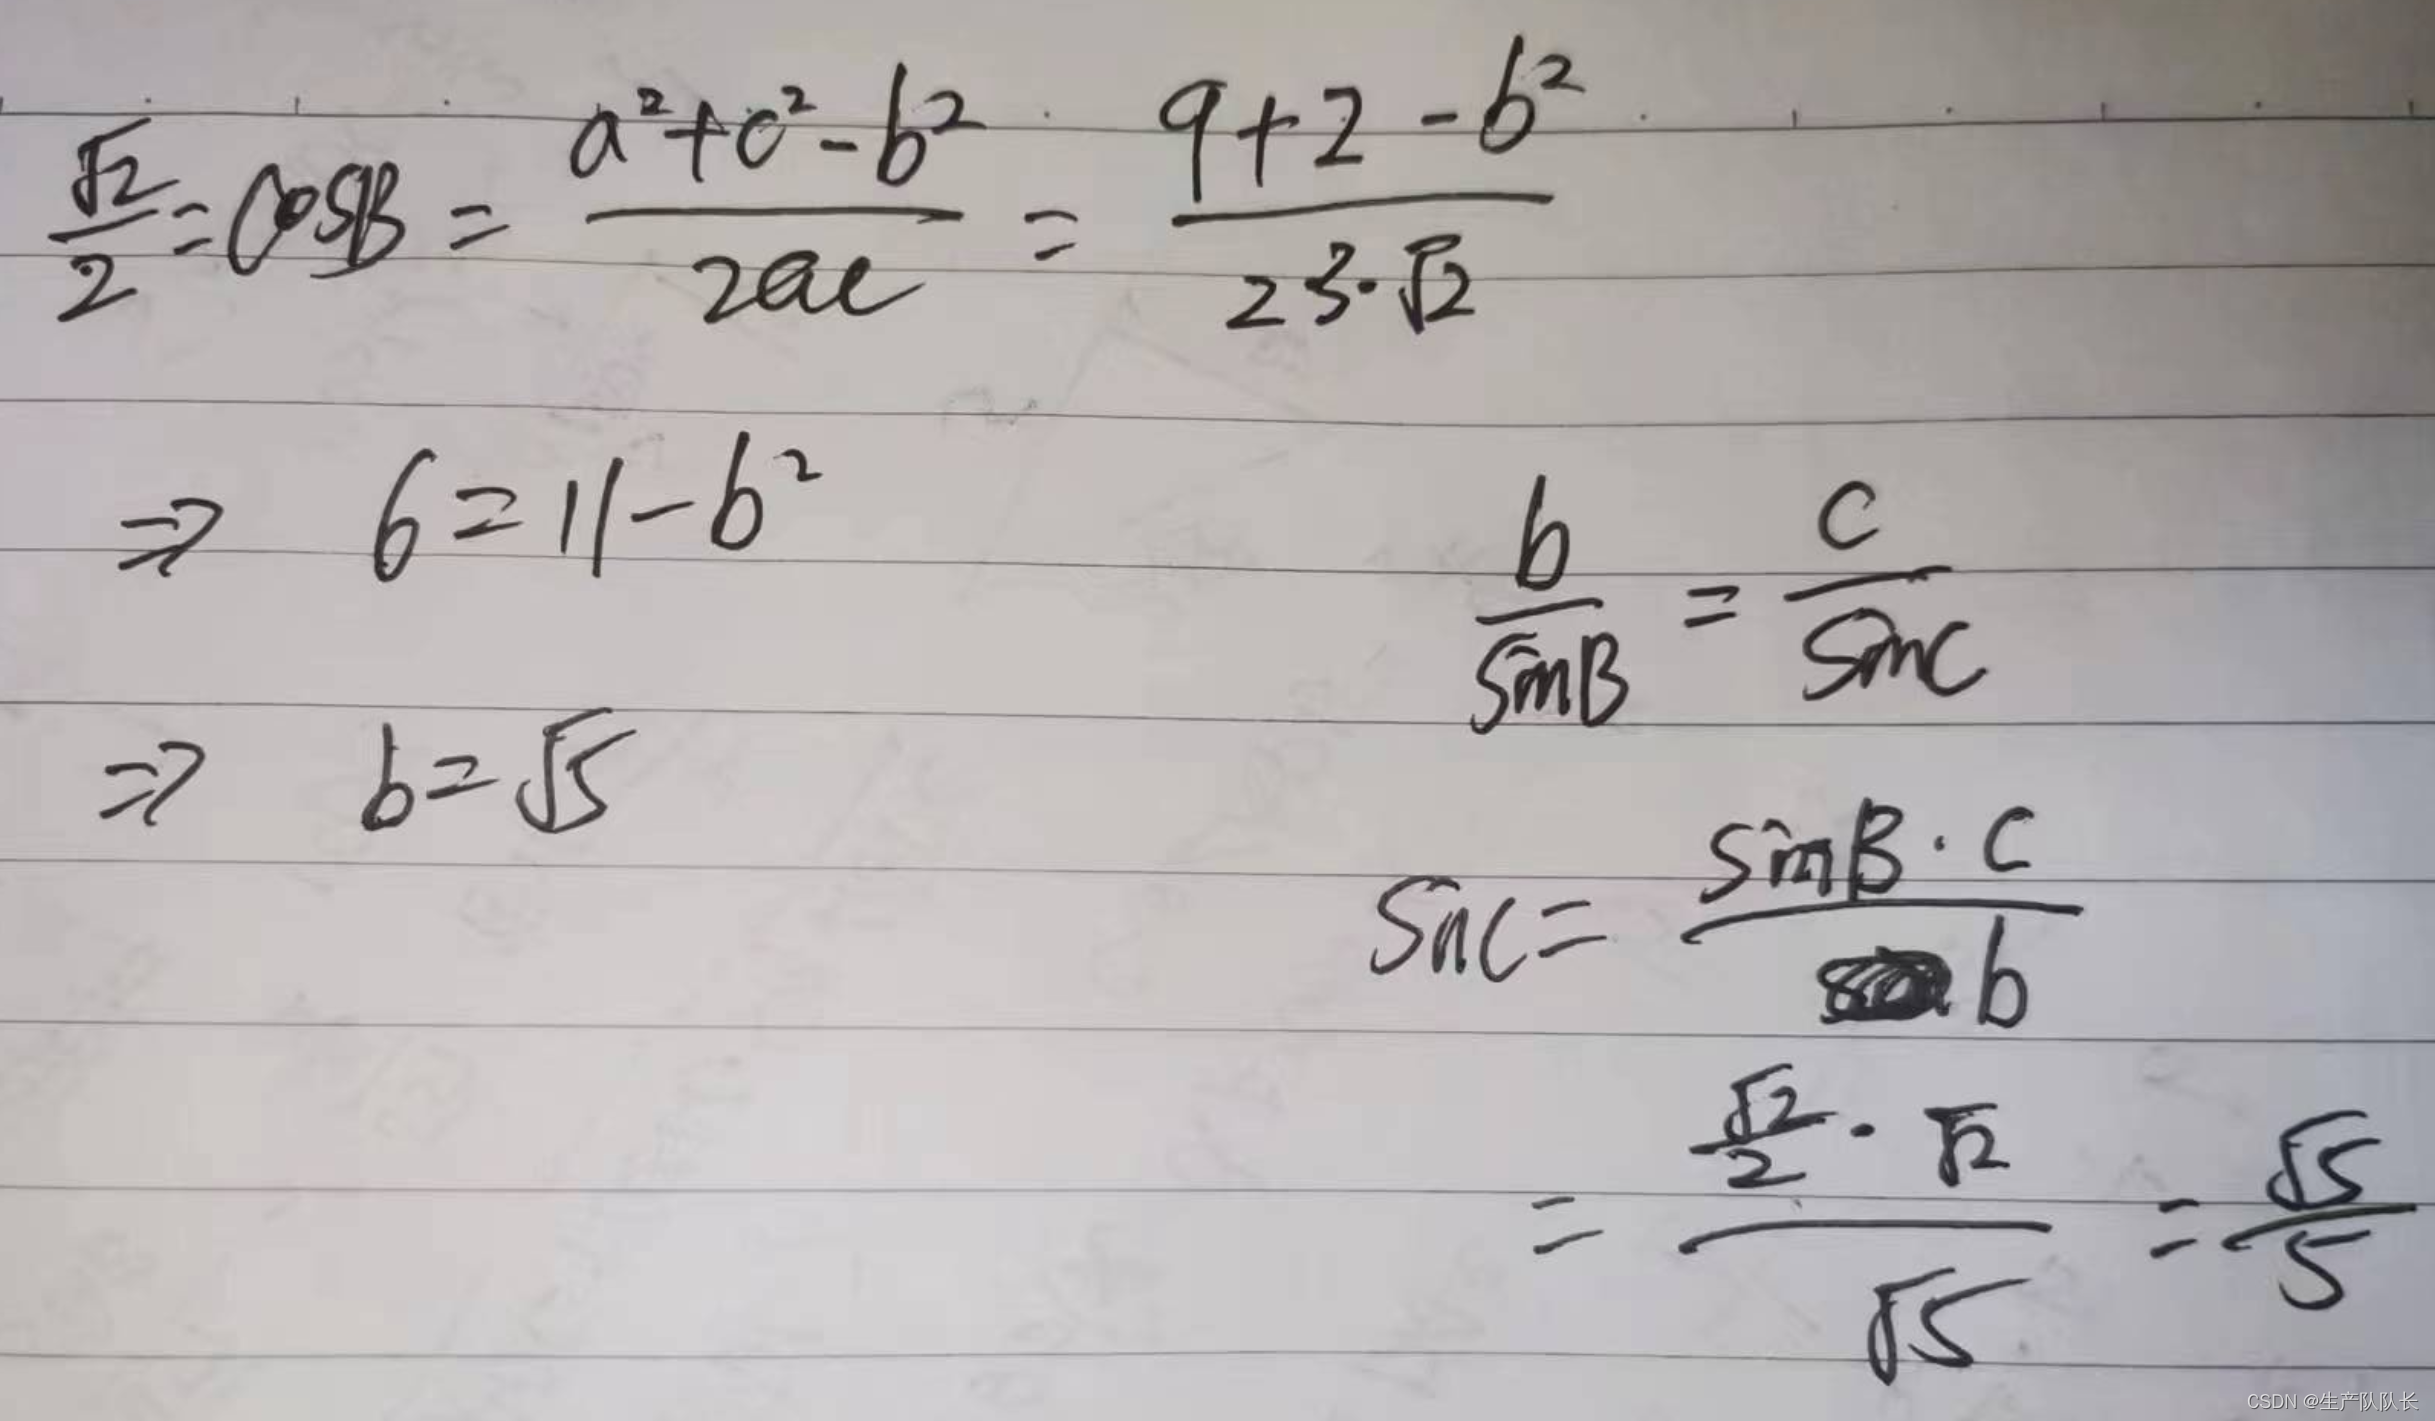 √2/2 = cosB = (a²+c²-b²)/(2ac) = (9+2-b²)/(2 3·√2)
⇒ 6=11-b²
b/sinB = c/sinC
⇒ b=√5
sinC = (sinB·c)/b
= (√2/2·√2)/√5 = √5/5
CSDN @生产队队长